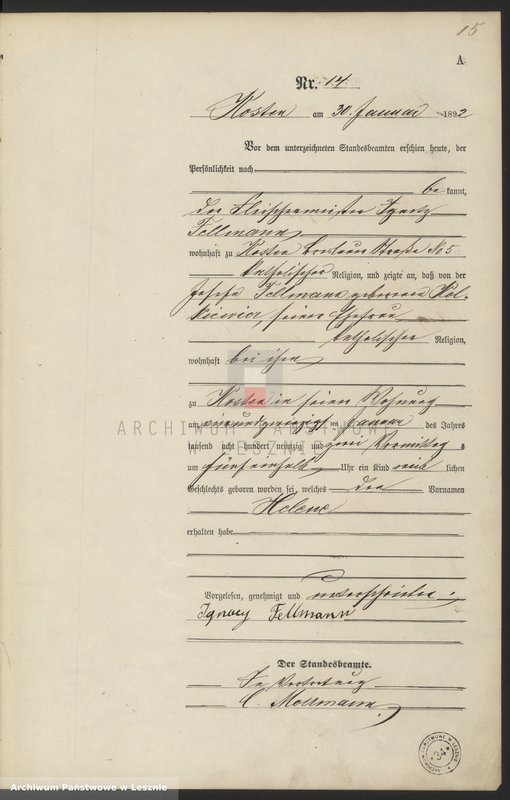 15
A.
Nr. 14
Kosten am 30. Januar 1892
Vor dem unterzeichneten Standesbeamten erschien heute, der
Persönlichkeit nach
bekannt,
der Fleischermeister Ignatz
Fellmann
wohnhaft zu Kosten Breslauer Straße No 5
katholischer Religion, und zeigte an, daß von der
Josefa Fellmann geborenen
seiner Ehefrau
katholischer Religion,
wohnhaft bei ihm
zu Kosten in seiner Wohnung
am neunundzwanzigsten Januar des Jahres
tausend acht hundert neunzig und zwei Vormittags
um fünfeinhalb Uhr ein Kind weiblichen
Geschlechts geboren worden sei, welches den Vornamen
Helene
erhalten habe
Vorgelesen, genehmigt und unterschrieben
Ignacy Fellmann
Der Standesbeamte.
In Vertretung
C. Mollmann
ARCHIWUM PAŃSTWOWE
W LESZNIE
ARCHIWUM PAŃSTWOWE W LESZNIE
34
Archiwum Państwowe w Lesznie